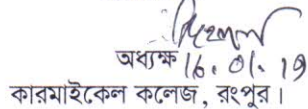 অধ্যক্ষ 16.01.19
কারমাইকেল কলেজ, রংপুর।